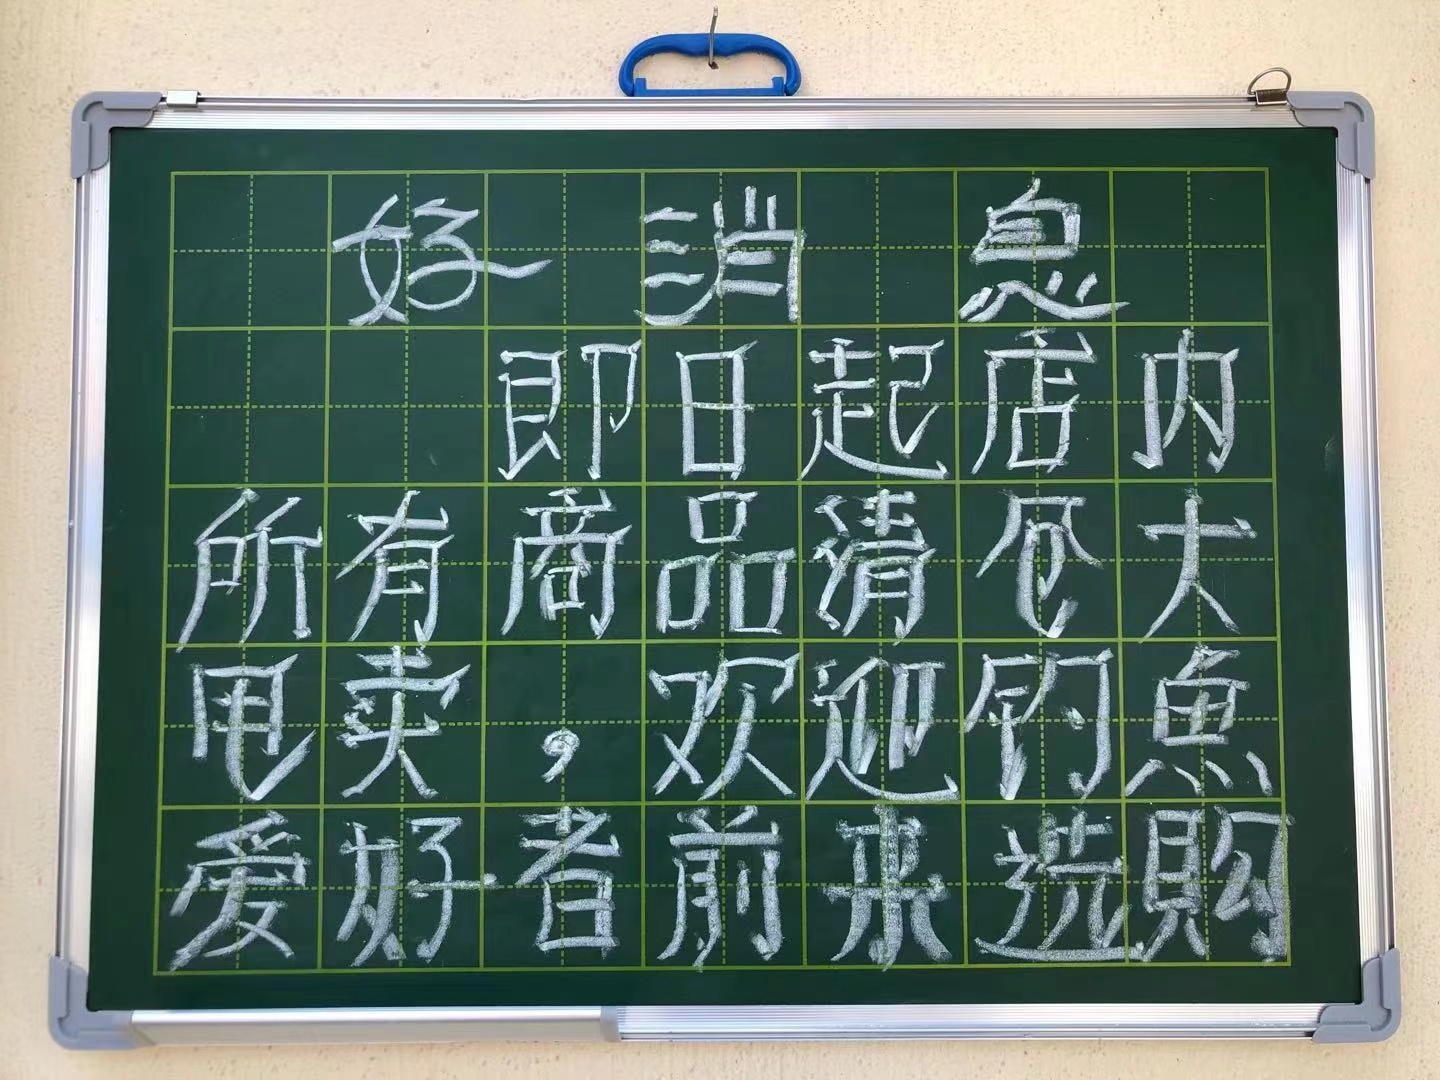 好消息
即日起店内
所有商品清仓大
甩卖，欢迎钓魚
爱好者前来选購